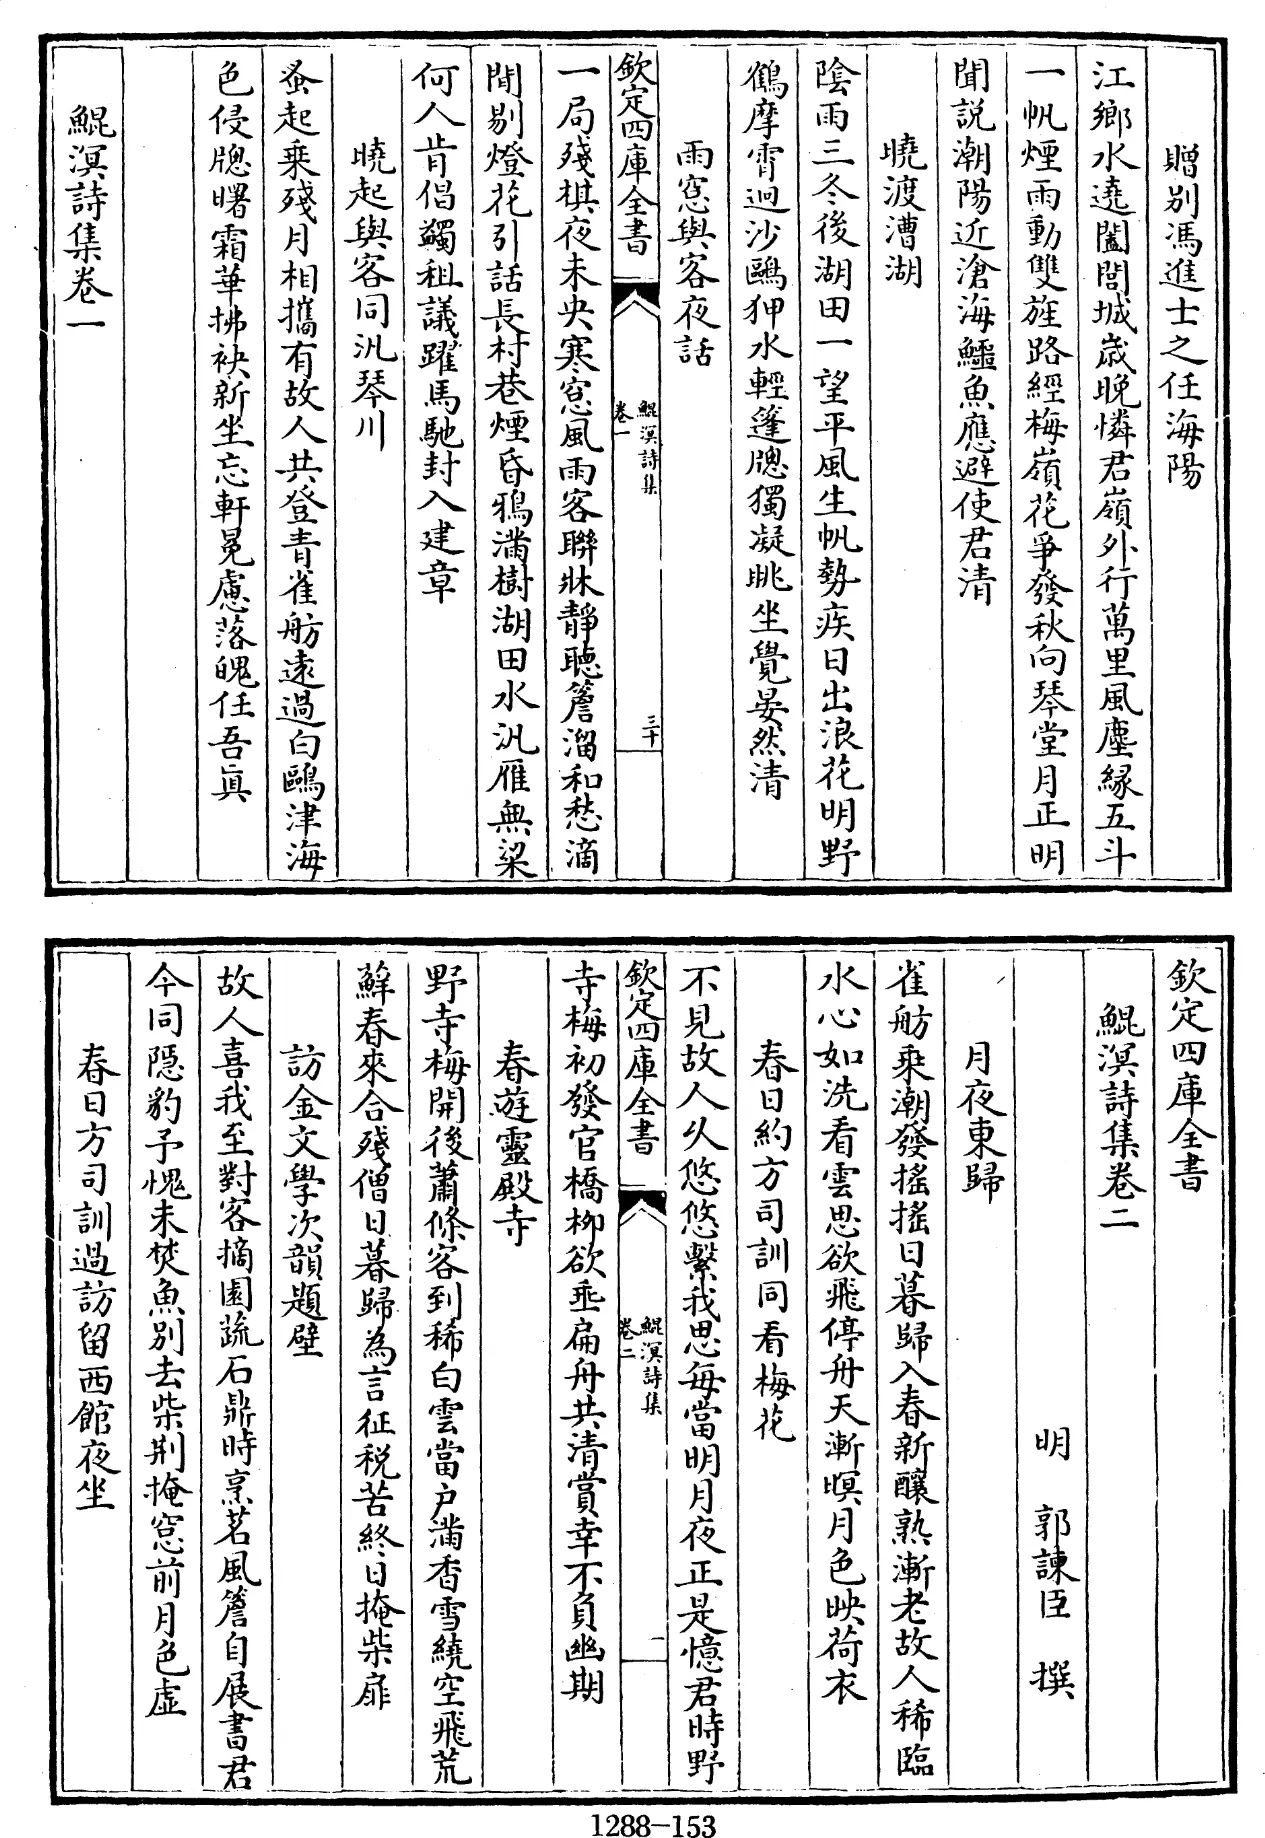 贈別馮進士之任海陽
江鄉水遶闔閭城歲晚憐君嶺外行萬里風塵緣五斗
一帆煙雨動雙旌路經梅嶺花爭發秋向琴堂月正明
聞説潮陽近滄海鱷魚應避使君清
曉渡漕湖
陰雨三冬後湖田一望平風生帆勢疾日出浪花明野
鶴摩霄迥沙鷗狎水輕篷牕獨凝眺坐覺晏然清
雨窓與客夜話
欽定四庫全書
鯤溟詩集
卷一
三十
一局殘棋夜未央寒窓風雨客聯牀靜聽簷溜和愁滴
閒剔燈花引話長村巷煙昏鴉滿樹湖田水汎雁無粱
何人肯倡蠲租議躍馬馳封入建章
曉起與客同汎琴川
蚤起乗殘月相攜有故人共登青雀舫遠過白鷗津海
色侵牕曙霜華拂袂新坐忘軒冕慮落魄任吾真
鯤溟詩集卷一
欽定四庫全書
鯤溟詩集卷二
明 郭諫臣 撰
月夜東歸
雀舫乗潮發摇摇日暮歸入春新釀熟漸老故人稀臨
水心如洗看雲思欲飛停舟天漸暝月色映荷衣
春日約方司訓同看梅花
不見故人久悠悠繫我思每當明月夜正是憶君時野
欽定四庫全書
鯤溟詩集
卷二
一
寺梅初發官橋柳欲垂扁舟共清賞幸不負幽期
春遊靈殿寺
野寺梅開後蕭條客到稀白雲當户滿香雪繞空飛荒
蘚春來合殘僧日暮歸為言征税苦終日掩柴扉
訪金文學次韻題壁
故人喜我至對客摘園蔬石鼎時烹茗風簷自展書君
今同隱豹予愧未焚魚别去柴荆掩窓前月色虚
春日方司訓過訪留西館夜坐
1288—153